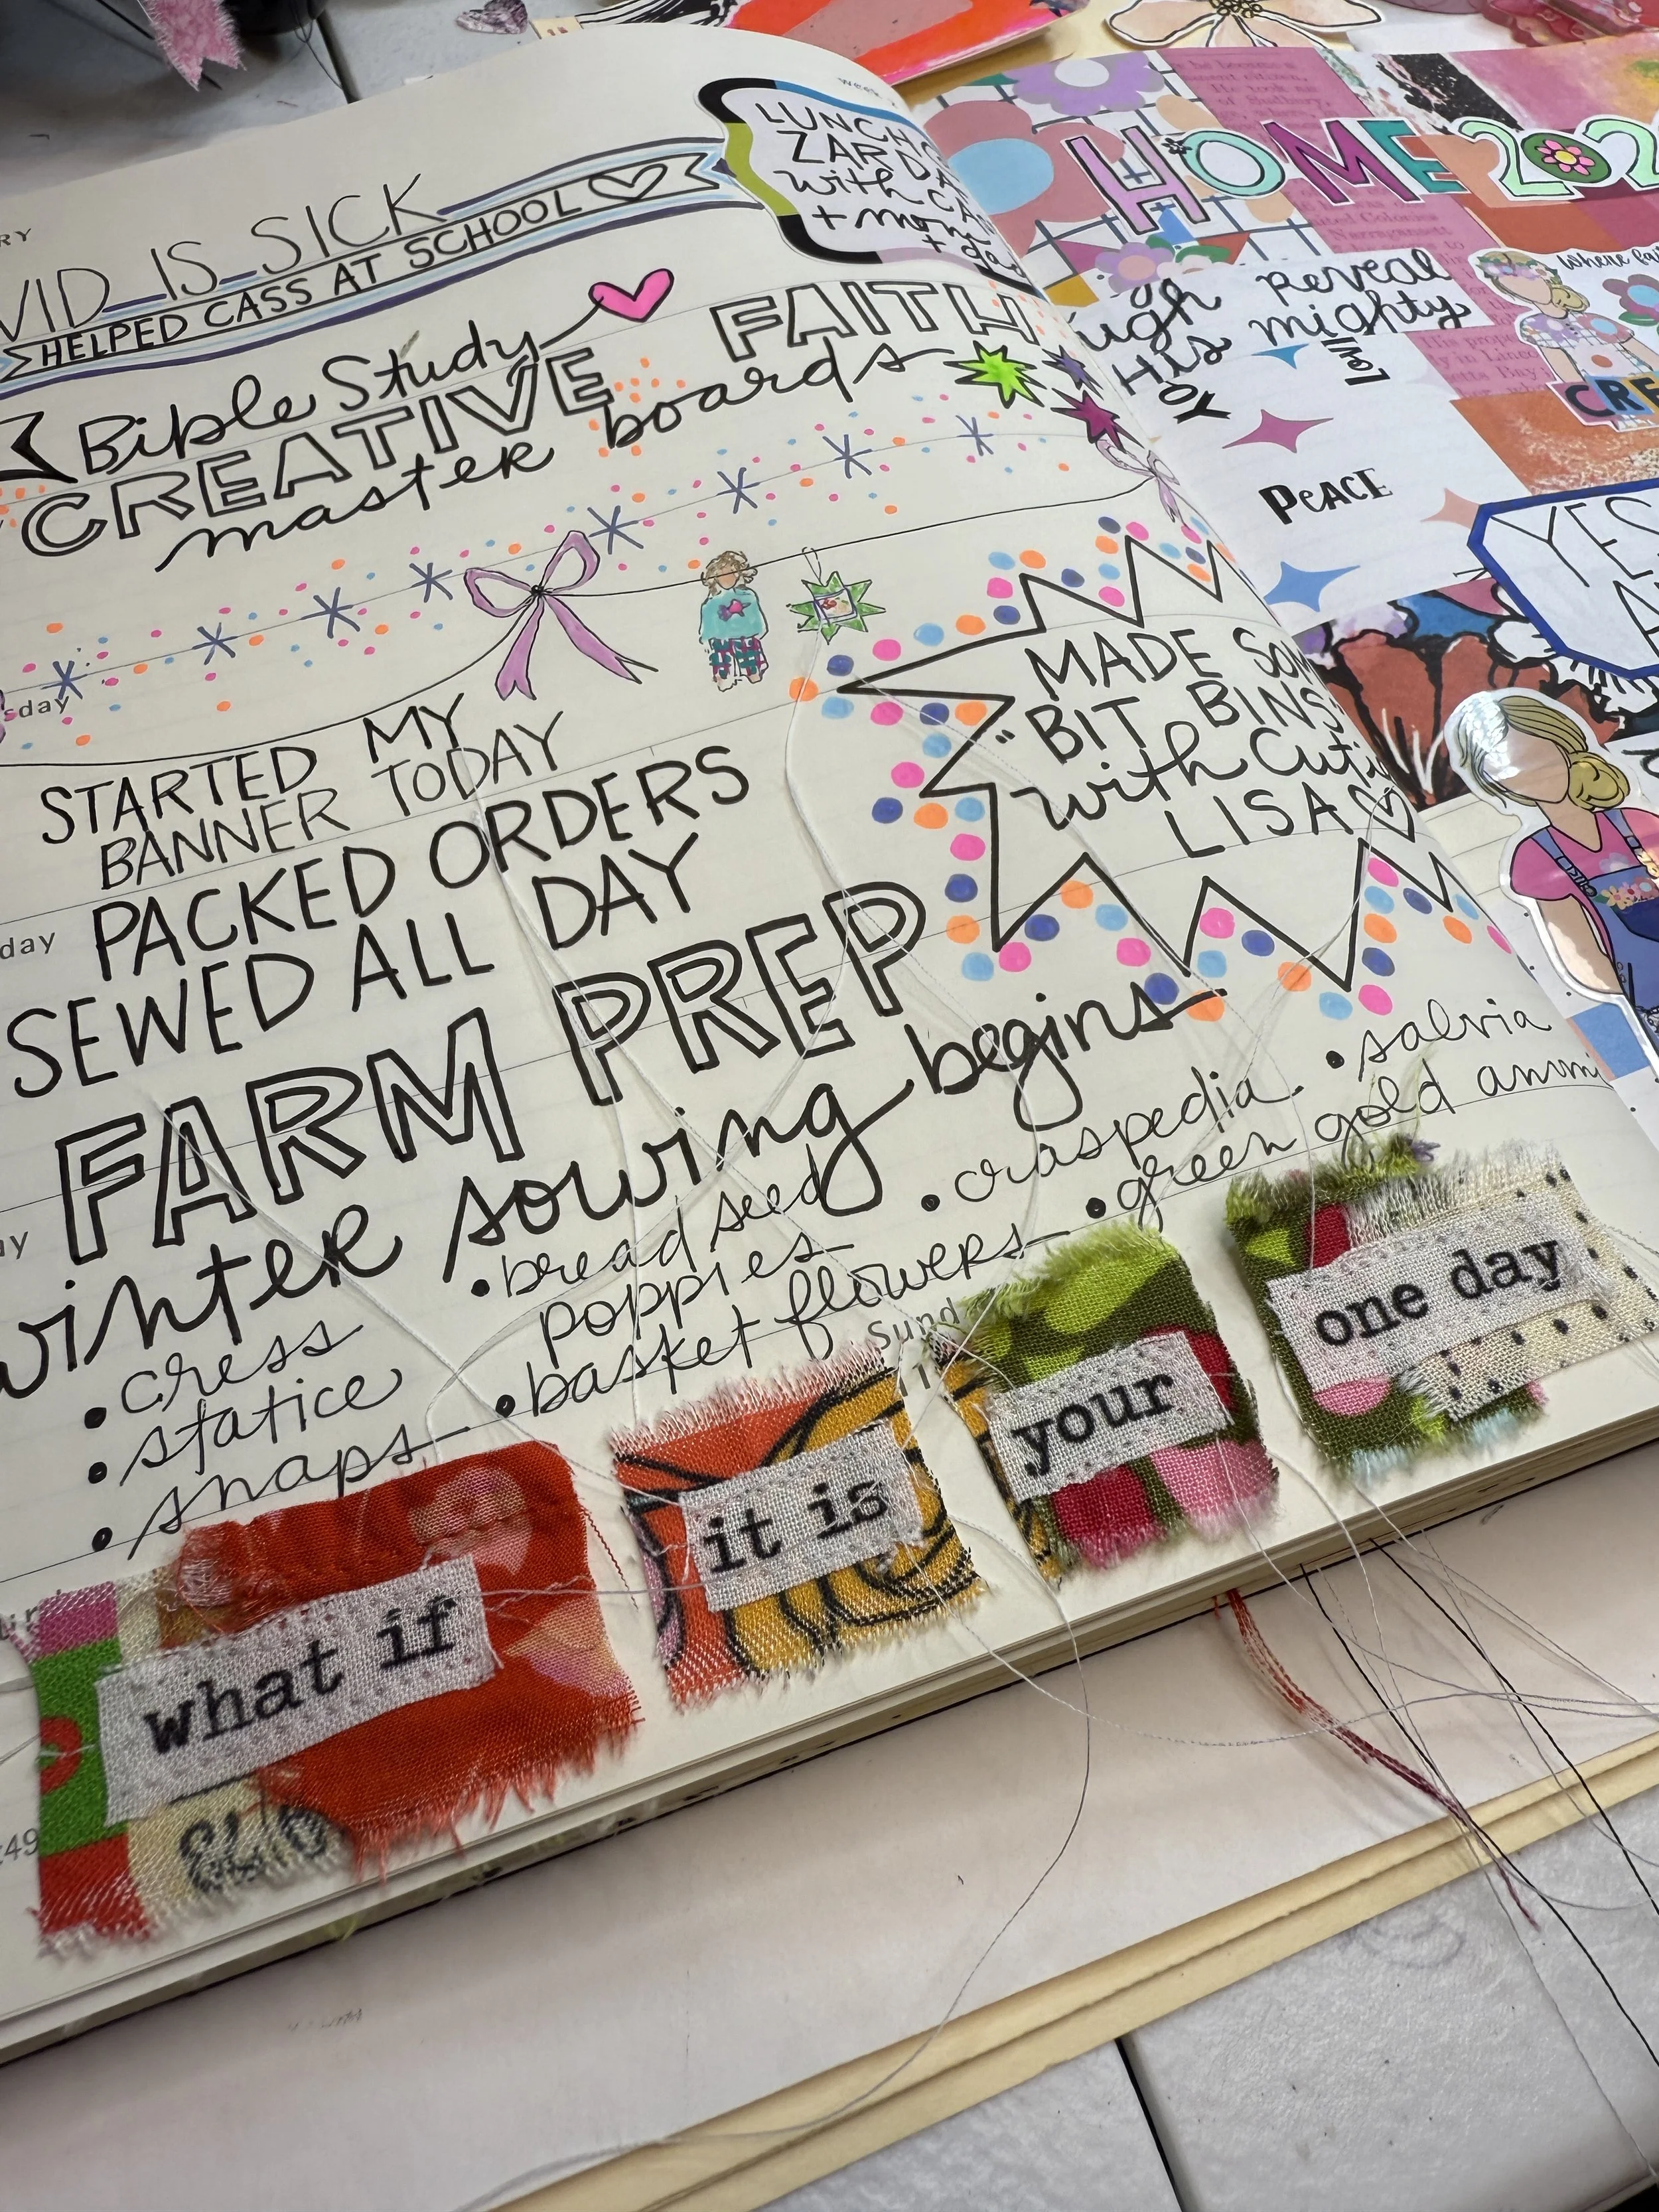 VID IS SICK
HELPED CASS AT SCHOOL
LUNCH
with
Bible Study
CREATIVE FAITH
master boards
STARTED MY
BANNER TODAY
PACKED ORDERS
SEWED ALL DAY
MADE SOM
"BIT BINS"
with Cuti
LISA
FARM PREP
winter sowing begins
• cress
• statice
• snaps
• bread seed
poppies
• basket flowers
• craspedia
• green gold ammi
• salvia
sday
day
ay
Sund
11
:49
what if
it is
your
one day
HOME 202
ugh
His
reveal
mighty
JOY
PEACE
CRE
YES